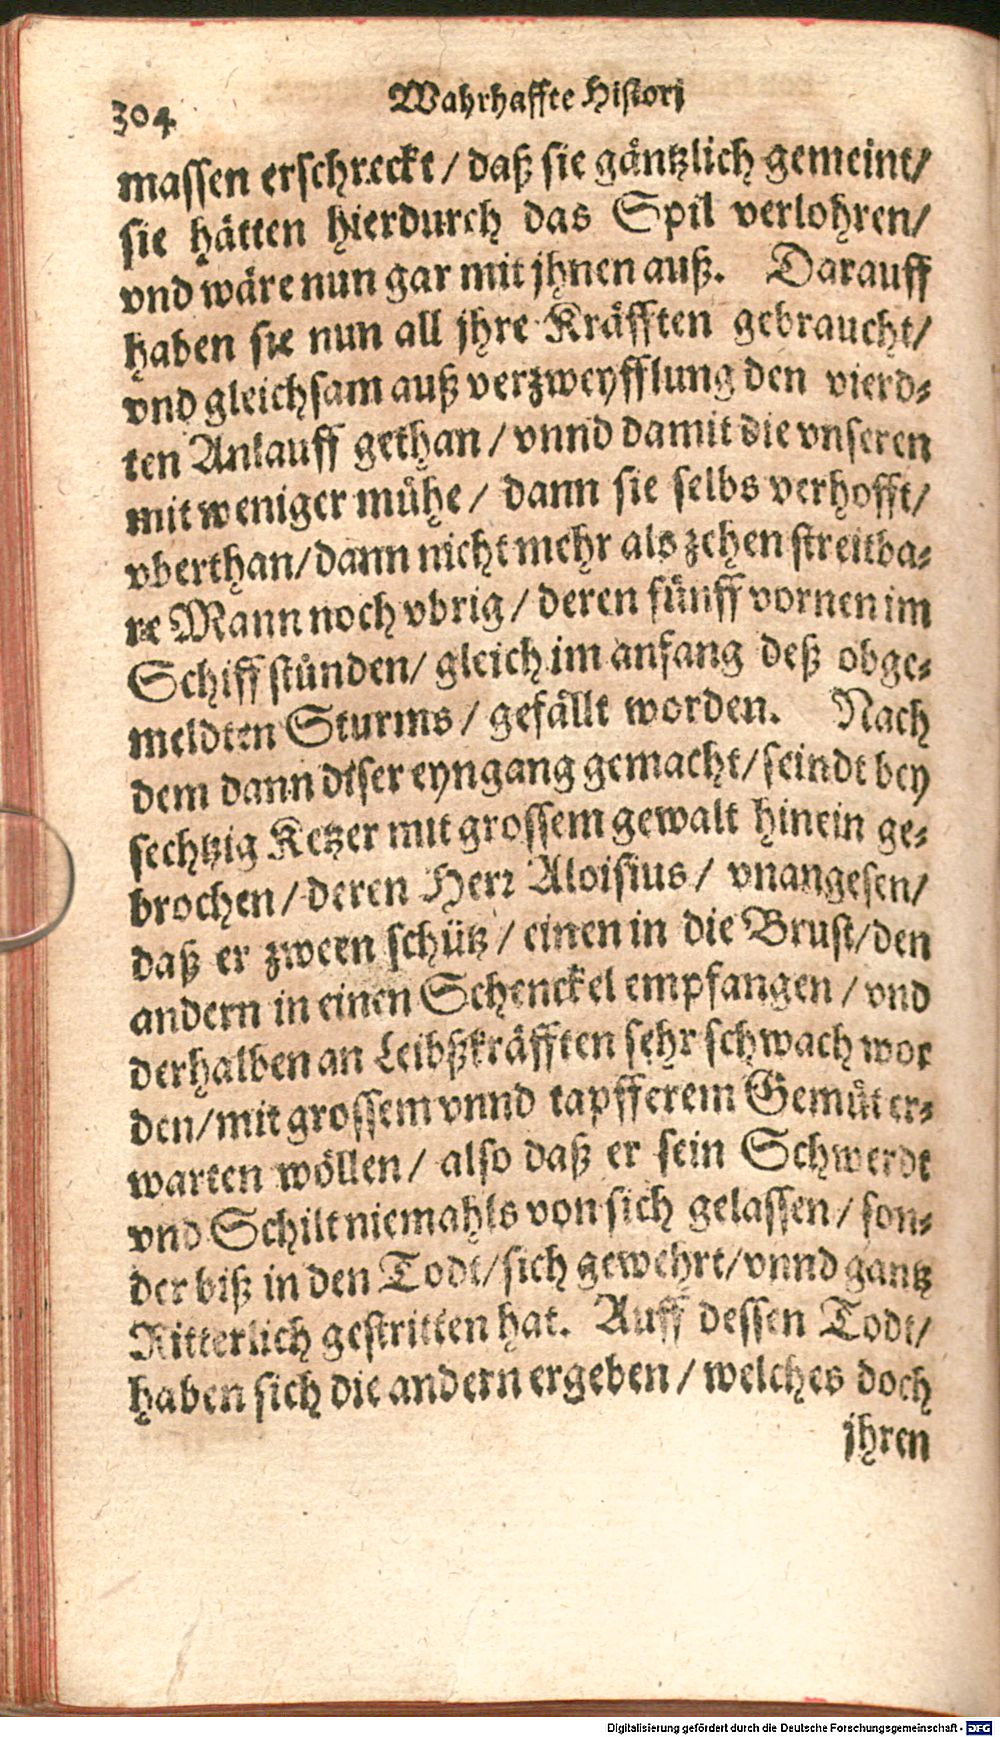 304 Wahrhaffte Histori
massen erschreckt / daß sie gäntzlich gemeint/
sie hätten hierdurch das Spil verlohren/
vnd wäre nun gar mit jhnen auß. Darauff
haben sie nun all jhre Kräfften gebraucht/
vnd gleichsam auß verzweyfflung den vierd-
ten Anlauff gethan / vnnd damit die vnseren
mit weniger mühe / dann sie selbs verhofft/
vberthan/dann nicht mehr als zehen streitba-
re Mann noch vbrig / deren fünff vornen im
Schiff stünden/ gleich im anfang deß obge-
meldten Sturms / gefällt worden. Nach
dem dann diser eyngang gemacht/seindt bey
sechtzig Ketzer mit grossem gewalt hinein ge-
brochen / deren Herr Aloisius / vnangesen/
daß er zween schütz / einen in die Brust/den
andern in einen Schenckel empfangen / vnd
derhalben an Leibßkräfften sehr schwach wor
den/mit grossem vnnd tapfferem Gemüt er-
warten wöllen / also daß er sein Schwerdt
vnd Schilt niemahls von sich gelassen / son-
der biß in den Todt/sich gewehrt/vnnd gantz
Ritterlich gestritten hat. Auff dessen Todt/
haben sich die andern ergeben / welches doch
jhren
Digitalisierung gefördert durch die Deutsche Forschungsgemeinschaft - DFG